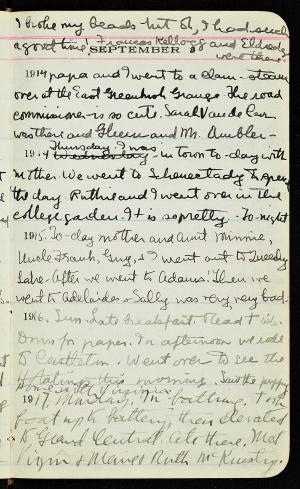 I broke my beads but oh, I had such
a good time! Frances Kellogg and
were there.
SEPTEMBER
1914 papa and I went to a clam-steam
over at the East Greenbush Grange. The road
commissioner is so cute. Sarah Van de Carr
was there and and Mr. Ambler -
Thursday I was
1914 Wednesday in town to-day with
mother. We went to Schenectady to spend
the day. Ruthie and I went over in the
college garden. It is so pretty. To-night
1915. To-day mother and Aunt Minnie,
Uncle Frank, & I went out to
Lake. After we went to Adams'. Then we
went to Adelaide's - Sally was very, very bad.
1916. Sun. Late breakfast. Read
for paper. In afternoon we rode
to Castleton. Went over to see the
this morning. Saw the puppy
Virginia.
1917. in bathing. Took
boat up to battery, then elevated
to Grand Central. Ate there. Met
Virgin & Mames Ruth McKinstry.